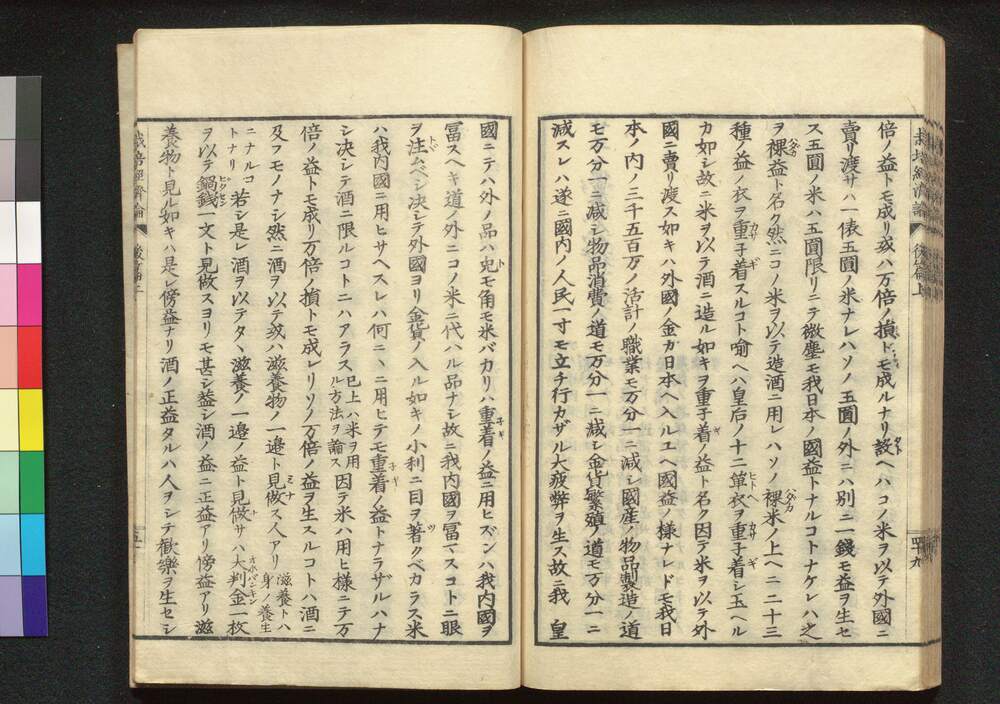 栽培經濟論 後篇上 四十九
倍ノ益トモ成リ或ハ万倍ノ損トモ成ルナリ設ヘハコノ米ヲ以テ外國ニ
賣リ渡サハ一俵五圓ノ米ナレハソノ五圓ノ外ニハ別ニ一錢モ益ヲ生セ
ス五圓ノ米ハ五圓限リニテ微塵モ我日本ノ國益トナルコトナケレハ之
ヲ裸益ト名ク然ニコノ米ヲ以テ造酒ニ用レハソノ裸米ノ上ヘニ二十三
種ノ益ノ衣ヲ重子着スルコト喩ヘハ皇后ノ十二單衣ヲ重子着シ玉ヘル
カ如シ故ニ米ヲ以テ酒ニ造ル如キヲ重子着ノ益ト名ク因テ米ヲ以テ外
國ニ賣リ渡ス如キハ外國ノ金ガ日本ヘ入ルユヘ國益ノ様ナレドモ我日
本ノ内ノ三千五百万ノ活計ノ職業モ万分一ニ減シ國産ノ物品製造ノ道
モ万分一ニ減シ物品消費ノ道モ万分一ニ減シ金貨繁殖ノ道モ万分一ニ
減スレハ遂ニ國内ノ人民一寸モ立チ行カザル大疲弊ヲ生ス故ニ我 皇
國ニテハ外ノ品ハ兔モ角モ米バカリハ重着ノ益ニ用ヒズンハ我内國ヲ
冨スヘキ道ノ外ニコノ米ニ代ハル品ナシ故ニ我内國ヲ冨マスコトニ眼
ヲ注ムベシ決シテ外國ヨリ金貨ノ入ル如キノ小利ニ目ヲ著クベカラス米
ハ我内國ニ用ヒサヘスレハ何ニハニ用ヒテモ重着ノ益トナラザルハナ
シ決シテ酒ニ限ルコトニハアラス已上ハ米ヲ用ル方法ヲ論ス因テ米ハ用ヒ様ニテ万
倍ノ益トモ成リ万倍ノ損トモ成レリソノ万倍ノ益ヲ生スルコトハ酒ニ
及フモノナシ然ニ酒ヲ以テ或ハ滋養物ノ一邉ト見做ス人アリ滋養トハ身ノ養生
ニナルコトナリ若シ是レ酒ヲ以テタヽ滋養ノ一邉ノ益ト見做サハ大判金一枚
ヲ以テ鍋錢一文ト見做スヨリモ甚シ益シ酒ノ益ニ正益アリ傍益アリ滋
養物ト見ル如キハ是レ傍益ナリ酒ノ正益タルハ人ヲシテ歡樂ヲ生セシ
栽培經濟論 後篇上 五十